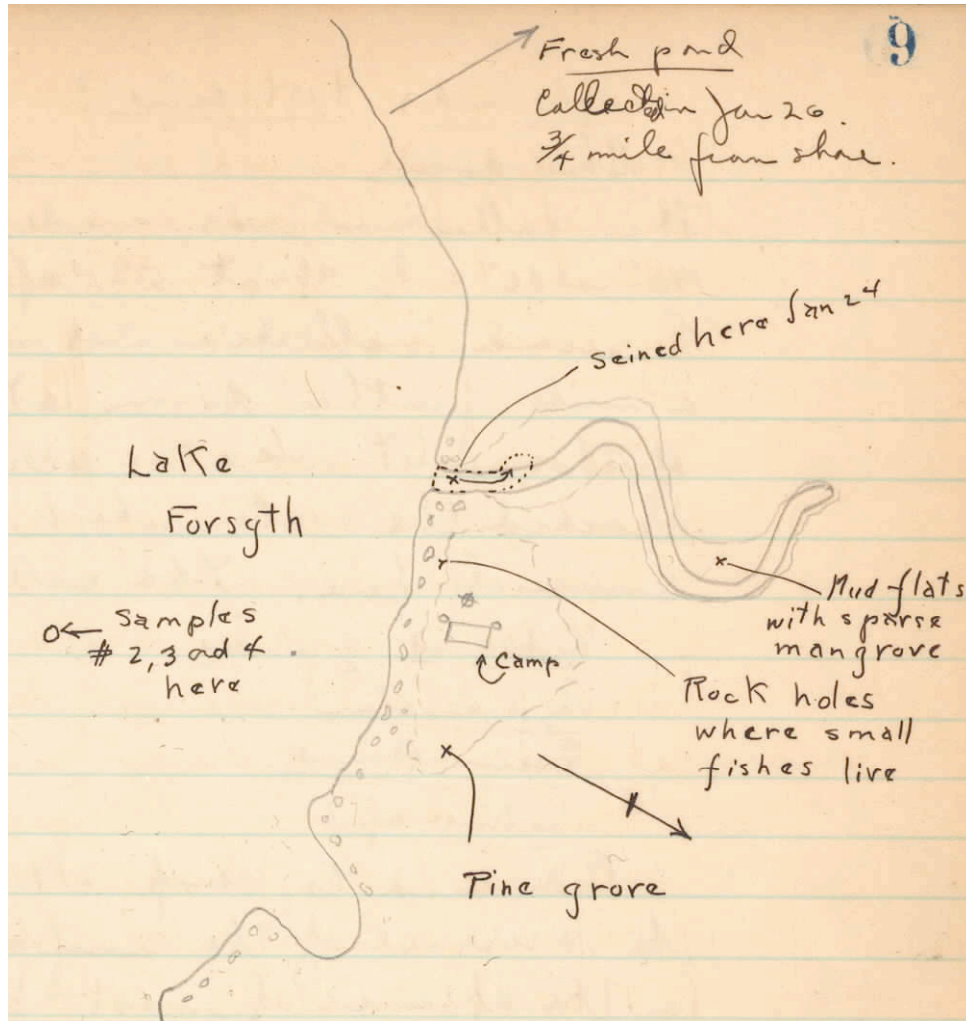 9
Fresh pond
Collection Jan 26.
3/4 mile from shore.
Seined here Jan 24
Lake
Forsyth
Samples
# 2, 3 and 4
here
Camp
Mud flats
with sparse
mangrove
Rock holes
where small
fishes live
Pine grove